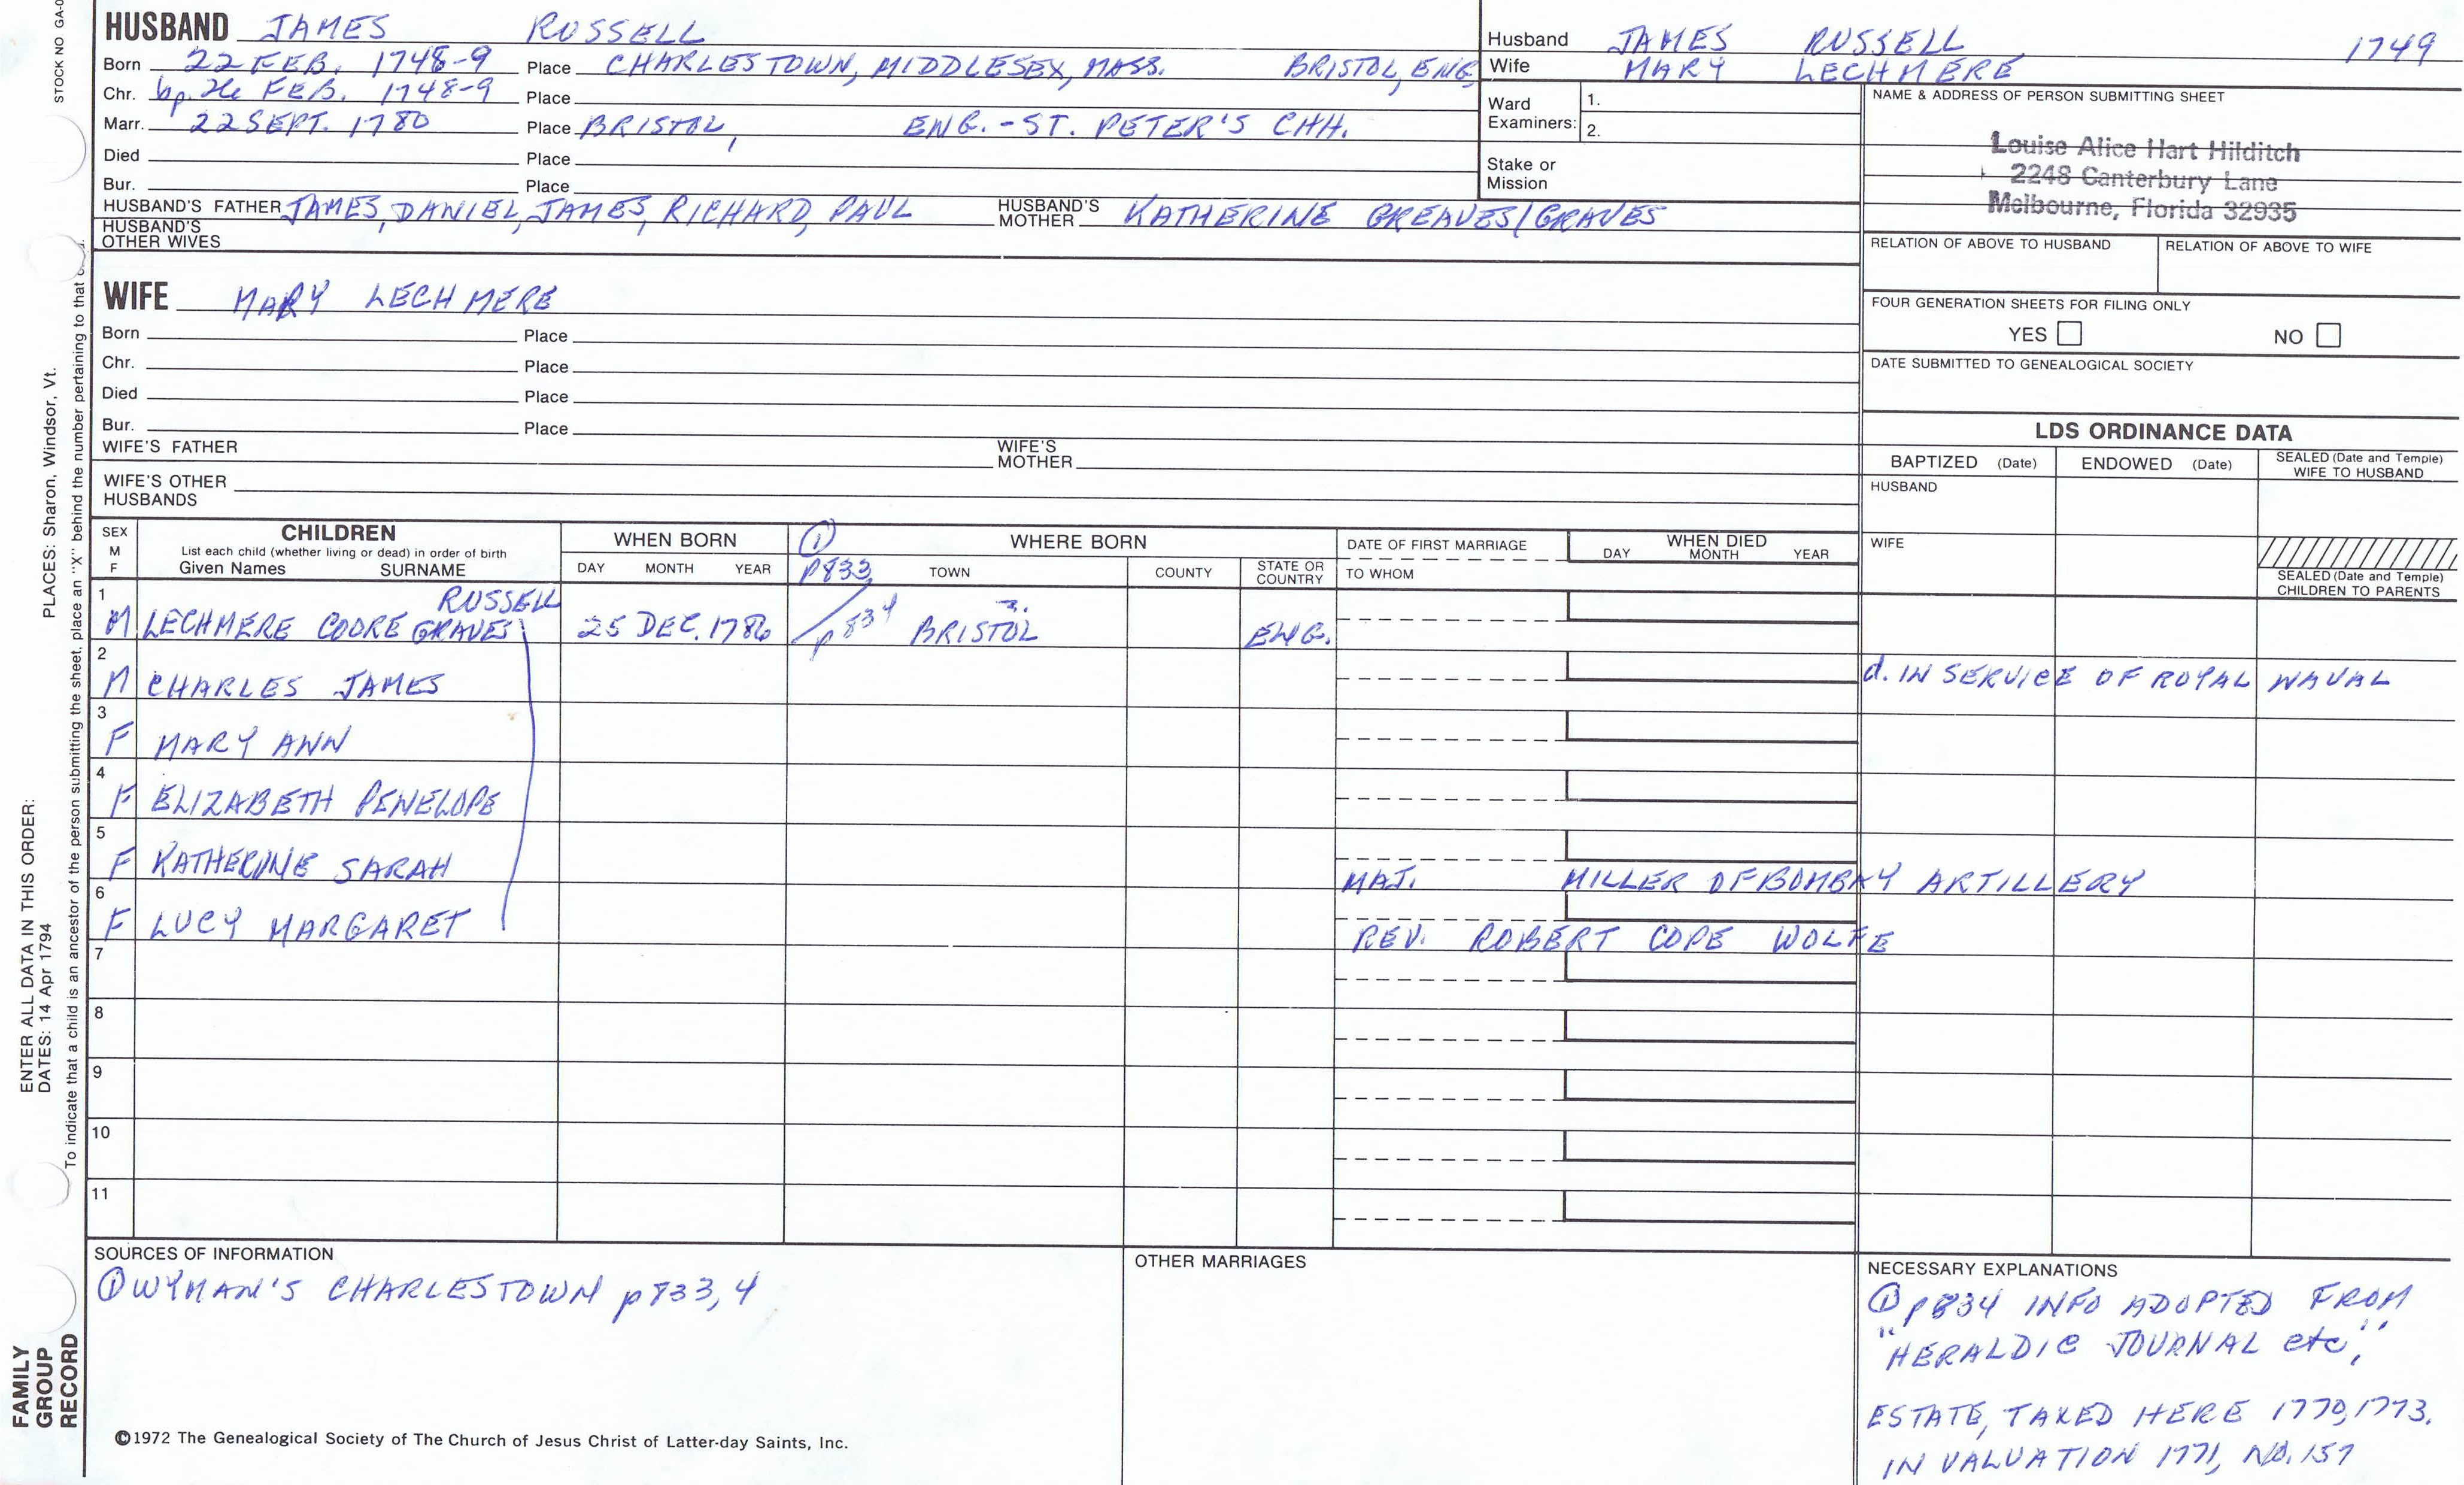 STOCK NO GA-0
HUSBAND JAMES RUSSELL
Born 22 FEB. 1748-9 Place CHARLESTOWN, MIDDLESEX, MASS. BRISTOL, ENG
Chr. bp. FEB. 1748-9 Place
Marr. 22 SEPT. 1780 Place BRISTOL, ENG. - ST. PETER'S CHH.
Died Place
Bur. Place
HUSBAND'S FATHER JAMES, DANIEL, JAMES, RICHARD, PAUL HUSBAND'S MOTHER KATHERINE GREAVES/GRAVES
HUSBAND'S OTHER WIVES
Husband JAMES RUSSELL 1749
Wife MARY LECHMERE
Ward Examiners: 1.
2.
Stake or Mission
NAME & ADDRESS OF PERSON SUBMITTING SHEET
Louise Alice Hart Hilditch
2248 Canterbury Lane
Melbourne, Florida 32935
RELATION OF ABOVE TO HUSBAND RELATION OF ABOVE TO WIFE
FOUR GENERATION SHEETS FOR FILING ONLY
YES NO
DATE SUBMITTED TO GENEALOGICAL SOCIETY
WIFE MARY LECHMERE
Born Place
Chr. Place
Died Place
Bur. Place
WIFE'S FATHER WIFE'S MOTHER
WIFE'S OTHER HUSBANDS
LDS ORDINANCE DATA
BAPTIZED (Date) ENDOWED (Date) SEALED (Date and Temple) WIFE TO HUSBAND
HUSBAND
WIFE
SEALED (Date and Temple) CHILDREN TO PARENTS
SEX M F CHILDREN
List each child (whether living or dead) in order of birth
Given Names SURNAME
WHEN BORN DAY MONTH YEAR
① p833 WHERE BORN TOWN COUNTY STATE OR COUNTRY
DATE OF FIRST MARRIAGE
TO WHOM
WHEN DIED DAY MONTH YEAR
1 RUSSELL
M LECHMERE COORE GRAVES 25 DEC. 1786 p834 BRISTOL ENG.
2
M CHARLES JAMES d. IN SERVICE OF ROYAL NAVAL
3
F MARY ANN
4
F ELIZABETH PENELOPE
5
F KATHERINE SARAH MAJ. MILLER OF BOMBAY ARTILLERY
6
F LUCY MARGARET REV. ROBERT COPE WOLFE
7
8
9
10
11
SOURCES OF INFORMATION
① WYMAN'S CHARLESTOWN p833,4
©1972 The Genealogical Society of The Church of Jesus Christ of Latter-day Saints, Inc.
OTHER MARRIAGES
NECESSARY EXPLANATIONS
① p834 INFO ADOPTED FROM
"HERALDIC JOURNAL etc",
ESTATE, TAXED HERE 1770, 1773.
IN VALUATION 1771, NO. 157
PLACES: Sharon, Windsor, Vt.
ENTER ALL DATA IN THIS ORDER:
DATES: 14 Apr 1794
To indicate that a child is an ancestor of the person submitting the sheet, place an "X" behind the number pertaining to that
FAMILY
GROUP
RECORD